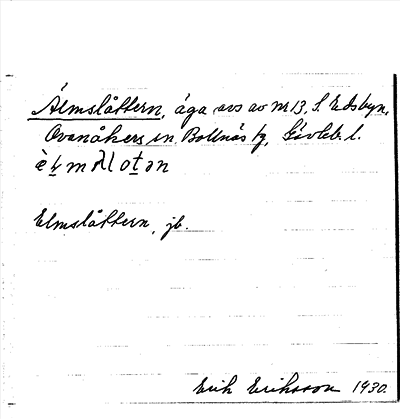 Älmslåttern, äga avs av nr 13, S. Edsbyn,
Ovanåkers sn. Bollnäs fg, Gävleb. l.
Elmslåttern, jb.
Erik Eriksson 1930.